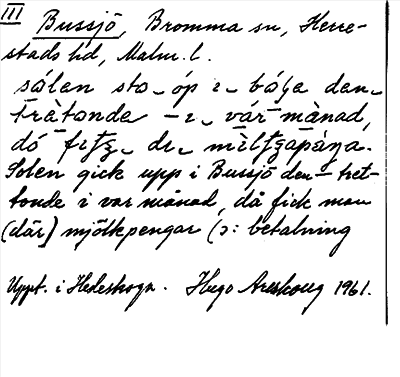 III Bussjö, Bromma sn, Herre-
stads hd, Malm. l.
sólen sto op i bóľa den
tràtonde – i vár mànad,
dó fitʒ di milťʒapàŋa.
Solen gick upp i Bussjö den – tret-
tonde i var månad, då fick man
(där) mjölkpengar (ɔ: betalning
Uppt. i Hedeskoga. Hugo Areskoug 1961.